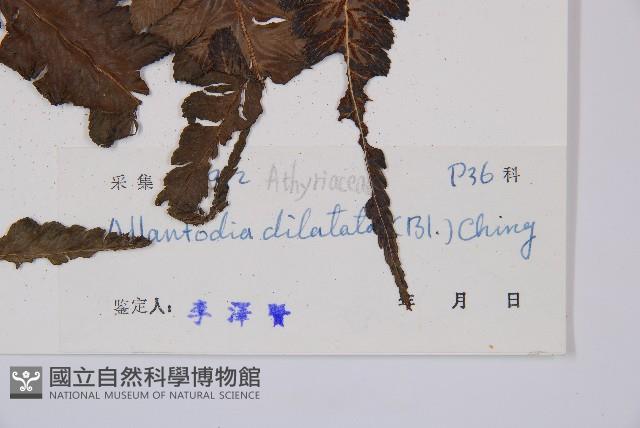 采集 Athyriaceae P36 科
Allantodia dilatata (Bl.) Ching
鉴定人: 李澤賢 年 月 日
國立自然科學博物館
NATIONAL MUSEUM OF NATURAL SCIENCE